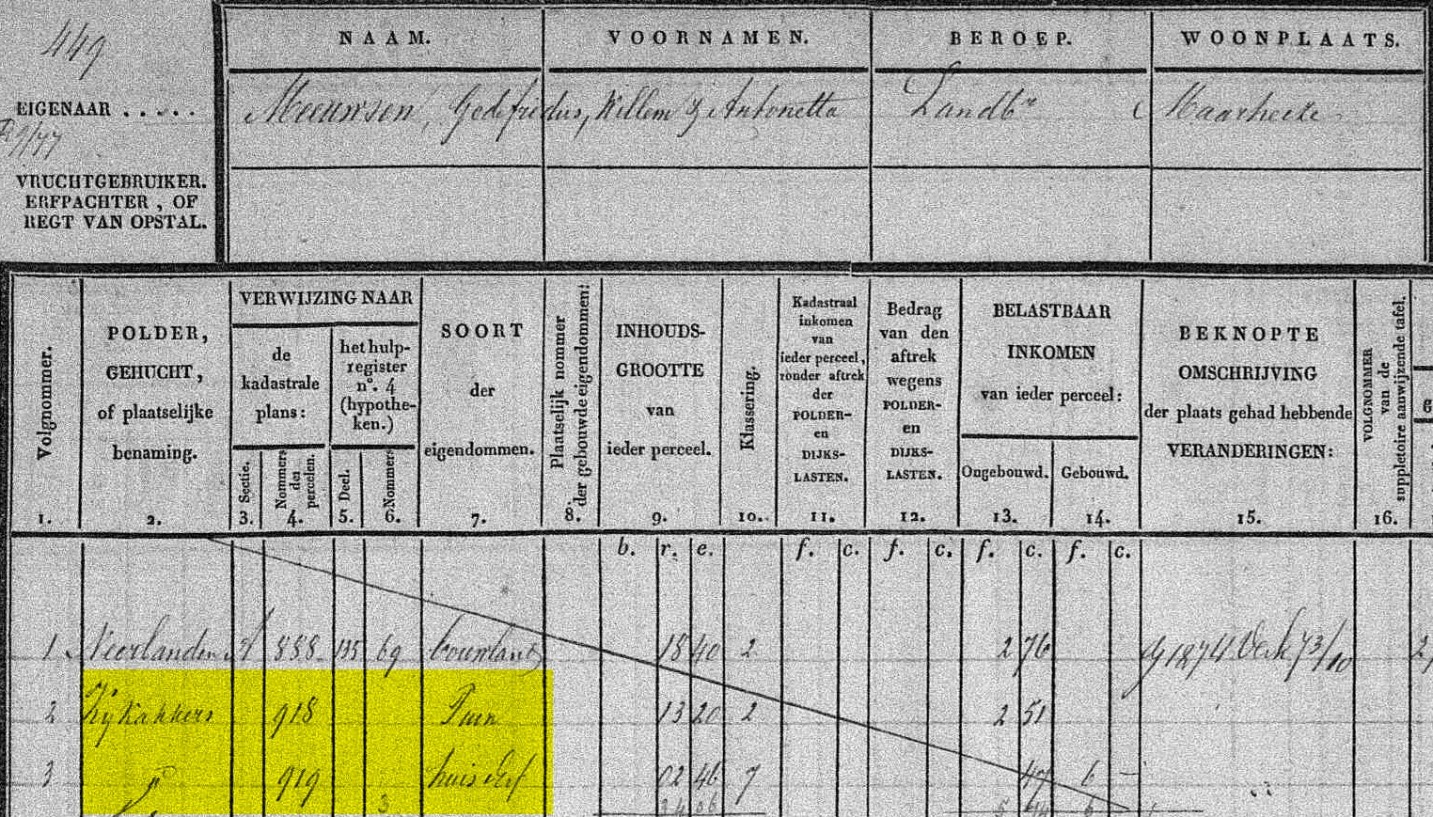 449
NAAM. VOORNAMEN. BEROEP. WOONPLAATS.
EIGENAAR . . . . .
Meeuwsen, Godefridus, Willem & Antonetta Landbr Maarheeze
VRUCHTGEBRUIKER.
ERFPACHTER, OF
REGT VAN OPSTAL.
Volgnommer.
1.
POLDER,
GEHUCHT,
of plaatselijke
benaming.
2.
VERWIJZING NAAR
de
kadastrale
plans:
Sectie.
3.
Nommers
der
percelen.
4.
het hulp-
register
n°. 4
(hypothe-
ken.)
Deel.
5.
Nommers
6.
SOORT
der
eigendommen.
7.
Plaatselijk nommer
der gebouwde eigendommen:
8.
INHOUDS-
GROOTTE
van
ieder perceel.
9.
Klassering.
10.
Kadastraal
inkomen
van
ieder perceel,
zonder aftrek
der
POLDER-
en
DIJKS-
LASTEN.
11.
Bedrag
van den
aftrek
wegens
POLDER-
en
DIJKS-
LASTEN.
12.
BELASTBAAR
INKOMEN
van ieder perceel:
Ongebouwd.
13.
Gebouwd.
14.
BEKNOPTE
OMSCHRIJVING
der plaats gehad hebbende
VERANDERINGEN:
15.
VOLGNOMMER
van de
suppletoire aanwijzende tafel.
16.
b. r. e. f. c. f. c. f. c. f. c.
1 Neerlanden A 888 135 69 bouwland 18 40 2 2 76
2 Zijkakkers 918 Tuin 13 20 2 2 51
3 919 huis & erf 02 46 7 47 6 —